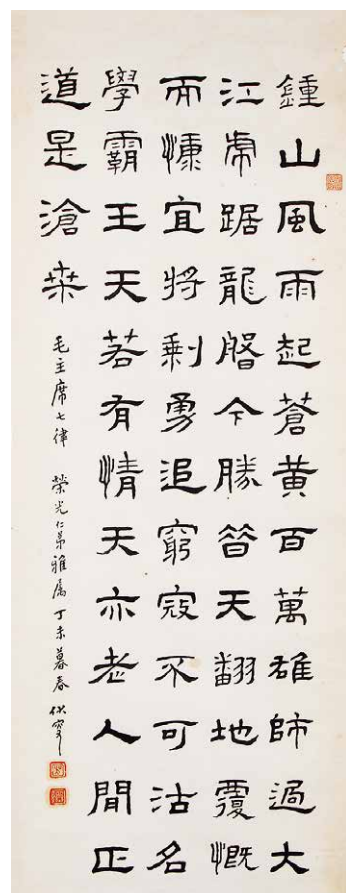 鍾山風雨起蒼黃百萬雄師過大
江虎踞龍盤今勝昔天翻地覆慨
而慷宜將剩勇追窮寇不可沽名
學霸王天若有情天亦老人間正
道是滄桑
毛主席七律 榮光仁弟雅屬 丁未暮春